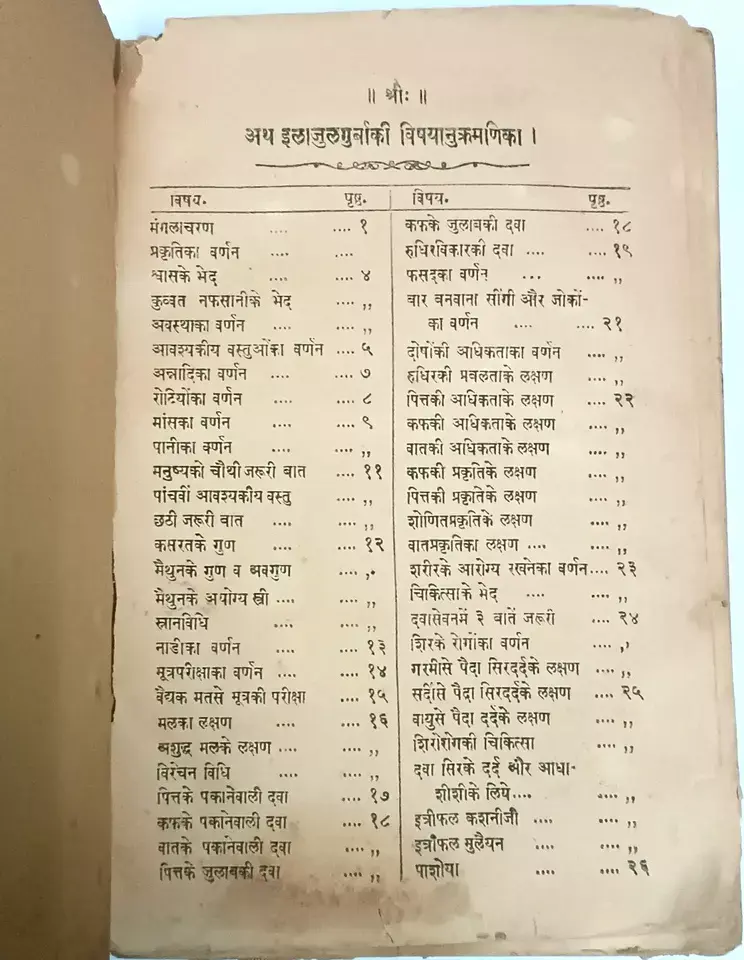 ॥ श्रीः ॥
अथ इलाजुलगुर्बाकी विषयानुक्रमणिका ।
विषय. पृष्ठ.
मंगलाचरण .... .... १
प्रकृतिका वर्णन .... ....
श्वासके भेद .... .... ४
कुव्वत नफसानीके भेद .... ,,
अवस्थाका वर्णन .... .... ,,
आवश्यकीय वस्तुओंका वर्णन .... ५
अन्नादिका वर्णन .... .... ७
रोटियोंका वर्णन .... .... ८
मांसका वर्णन .... .... ९
पानीका वर्णन .... .... ,,
मनुष्यको चौथी जरूरी बात .... ११
पांचवीं आवश्यकीय वस्तु .... ,,
छठी जरूरी बात .... .... ,,
कसरतके गुण .... .... १२
मैथुनके गुण व अवगुण .... ,,
मैथुनके अयोग्य स्त्री .... .... ,,
स्नानविधि .... .... ,,
नाडीका वर्णन .... .... १३
मूत्रपरीक्षाका वर्णन .... .... १४
वैद्यक मतसे मूत्रकी परीक्षा .... १५
मलका लक्षण .... .... १६
अशुद्ध मलके लक्षण .... .... ,,
विरेचन विधि .... .... ,,
पित्तके पकानेवाली दवा .... १७
कफके पकानेवाली दवा .... १८
वातके पकानेवाली दवा .... ,,
पित्तके जुलाबकी दवा .... ,,
विषय. पृष्ठ.
कफके जुलाबकी दवा .... १८
रुधिरविकारकी दवा .... .... १९
फसदका वर्णन ... .... ,,
वार बनवाना सींगी और जोकों-
का वर्णन .... .... २१
दोषोंकी अधिकताका वर्णन .... ,,
रुधिरकी प्रबलताके लक्षण .... ,,
पित्तकी अधिकताके लक्षण .... २२
कफकी अधिकताके लक्षण .... ,,
वातकी अधिकताके लक्षण .... ,,
कफकी प्रकृतिके लक्षण .... ,,
पित्तकी प्रकृतिके लक्षण .... ,,
शोणितप्रकृतिके लक्षण .... ,,
वातप्रकृतिका लक्षण .... .... ,,
शरीरके आरोग्य रखनेका वर्णन .... २३
चिकित्साके भेद .... .... ,,
दवासेवनमें ३ बातें जरूरी .... २४
शिरके रोगोंका वर्णन .... ,,
गरमीसे पैदा सिरदर्दके लक्षण .... ,,
सर्दीसे पैदा सिरदर्दके लक्षण .... २५
वायुसे पैदा दर्दके लक्षण .... ,,
शिरोरोगकी चिकित्सा .... ,,
दवा सिरके दर्द और आधा-
शीशीके लिये .... .... ,,
इत्रीफल कशनीजी .... .... ,,
इत्रीफल मुलैयन .... .... ,,
पाशोया .... .... २६